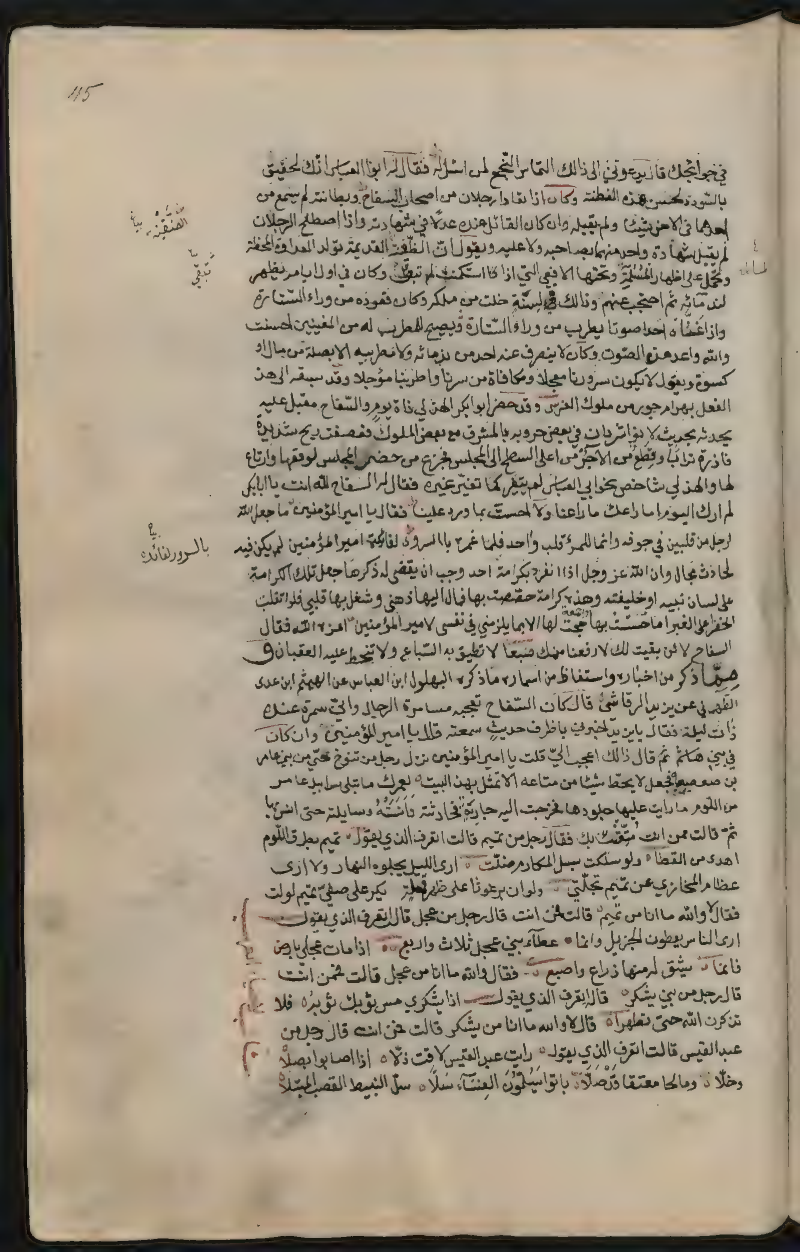 115
في حوائجك قال يدعوني الى ذالك التماس النجح لمن اسئل له فقال له ابوا العباس انك لحقيق
بالسودد لحسن هذه الفطنة وكان اذا تعادا رجلان من اصحاب السفاح وبطانته لم يسمع من
احدهما في الاخر شيئا ولم يقبله وان كان القائل عنده عدلا في شهادته واذا اصطلح الرجلان
لم يقبل شهادة واحد منهما لصاحبه ولا عليه ويقول ان الضغينة القديمة تولد العداوة المحضة
وتحمل على اظهار المسالمة وتحتها الافعي التي اذا تمكنت لم تبق وكان في اول ايامه يظهر
لندمائه ثم احتجب عنهم وذالك في لسنة خلت من ملكه وكان قعوده من وراء الستارة
واذا غناه احد صوتا يطرب من وراء الستارة ويصيح للمطرب له من المغنيين احسنت
والله واعد هذا الصوت وكان لا ينصرف عنه احد من ندمائه ولا مطربيه الا بصلة من مال او
كسوة ويقول لا يكون سرورنا معجلا ومكافاة من سرنا واطربنا مؤجلا وقد سبقه الى هذا
الفعل بهرام جور من ملوك الفرس وقد حضر ابوا بكر الهذلي ذاة يوم والسفاح مقبل عليه
يحدثه بحديث لانوا شروان في بعض حروبه بالمشرق مع بعض الملوك فعصفت ريح شديدة
فاذرة ترابا وقطع من الآجر من اعلى السطح الى المجلس فجزع من حضر المجلس لوقعها وارتاع
لها والهذلي شاخص نحوا ابي العباس لم يتغير كما تغير غيره فقال له السفاح لله انت يا ابا بكر
لم ارك اليوم اما راعك ما راعنا ولا احسست بما ورد علينا فقال يا امير المؤمنين ما جعل الله
لرجل من قلبين في جوفه وانما للمرء قلب واحد فلما غمره بالسرور لفائدة امير المؤمنين لم يكن فيه
لحادث مجال وان الله عز وجل اذا انفرد بكرامة احد وجب ان يقضي له ذكرها جعل تلك الكرامة
على لسان نبيه او خليفته وهذه كرامة خصصت بها فمال اليها ذهني وشغل بها قلبي فلو انقلبت
الخضرا على الغبرا ما حسست بها ولا وجمت لها الا بما يلزمني في نفسي لامير المؤمنين اعزه الله فقال
السفاح لان بقيت لك لارفعن منك ضبعا لا تطيق به السباع ولا تنحط عليه العقبان و
مما ذكر من اخباره واستفاظ من اسماره ما ذكره البهلول ابن العباس عن الهيثم ابن عدى
عن يزيد الرقاشى قال كان السفاح تعجبه مسامرة الرجال واني سمرة عنده
ذات ليلة فقال يا يزيد اخبرني باظرف حديث سمعته قال يا امير المؤمنين وان كان
في بني هاشم ثم قال ذالك اعجب اليّ قلت يا امير المؤمنين نزل رجل من تنوخ بحي من بني عامر
بن صعصعه فجعل لا يحط شيئا من متاعه الا تمثل بهذا البيت لعمرك ما تبلى سرابيل عامر
من اللؤم ما دامت عليها جلودها فخرجت اليه جارية فحادثته وآنسته وسايلته حتى انس بها
ثم قالت ممن انت متعت بك فقال رجل من تميم قالت اتعرف الذي يقول تميم بطرق اللوم
اهدى من القطا ولو سلكت سبل المكارم ضلت ارى الليل يجلوه النهار ولا ارى
عظام المخازي عن تميم تجلت ولو ان برغوثا على ظهر قملة يكر على صفي تميم لولت
فقال لا والله ما انا من تميم قالت فمن انت قال رجل من عجل قال اتعرف الذي يقول
ارى الناس يعطون الجزيل وانما عطاء بني عجل ثلاث واربع اذا مات عجلي بارض
فانما يشق له منها ذراع واصبع فقال والله ما انا من عجل قالت فمن انت
قال رجل من بني يشكر قال اتعرف الذي يقول اذا يشكري مس ثوبك ثوبه فلا
تذكرن الله حتى تطهرا قال لا والله ما انا من يشكر قالت فمن انت قال رجل من
عبد القيس قالت اتعرف الذي يقول رايت عبد القيس لاقت ذلا اذا اصابوا بصلا
وخلا ومالحا معتقا قد صلا باتوا يسلون الفسآء سلا سل النبيط القصب المبتلا
بالسرور لفائده